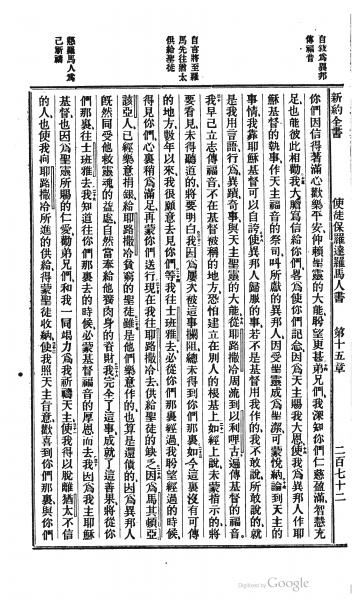 自敘爲異邦
傳福音
自言將至羅
馬先往猶太
供給聖徒
懇羅馬人爲
己祈禱
新約全書 使徒保羅達羅馬人書 第十五章 二百七十二
你們因信得著滿心歡樂平安仰賴聖靈的大能盼望更甚弟兄們我深知你們仁慈盈滿智慧充
足也能彼此相勸我大膽寫信給你們畧爲使你們記念因爲天主賜我大恩使我爲異邦人作耶
穌基督的執事作天主福音的祭司叫所獻的異邦人因受聖靈成爲聖潔可蒙悅納論到天主的
事情我靠耶穌基督可以自誇使異邦人歸服的事若不是基督用我作的我不敢說所敢說的就
是我用言語行爲異蹟奇事與天主聖靈的大能從耶路撒冷周流到以利哩古遍傳基督的福音
我早已立志傳福音不在基督被稱的地方恐怕建立在別人的根基上如經上說未蒙指示的將
要看見未得聽道的將要明白我因爲屢次被這事攔阻總未得到你們那裏如今這裏沒有可傳
的地方數年以來我很願意去見你們等我往士班雅去必從你們那裏經過我盼望經過的時候
得見你們心裏稍爲滿足再蒙你們送行現在我往耶路撒冷去供給聖徒的缺乏因爲馬其頓亞
該亞人已經樂意捐銀給耶路撒冷貧窮的聖徒雖是他們樂意作的也算是還債的因爲異邦人
旣然同受他救靈魂的益處自然當奉給他養肉身的貲財我完全了這事成就了這善果將從你
們那裏往士班雅去我知道往你們那裏去的時候必蒙基督福音的厚恩而去我因爲我主耶穌
基督也因爲聖靈所賜的仁愛勸弟兄們和我一同竭力爲我祈禱天主使我得以脫離猶太不信
的人也使我向耶路撒冷所進的供給得蒙聖徒收納使我照天主旨意歡喜到你們那裏與你們
Digitized by Google